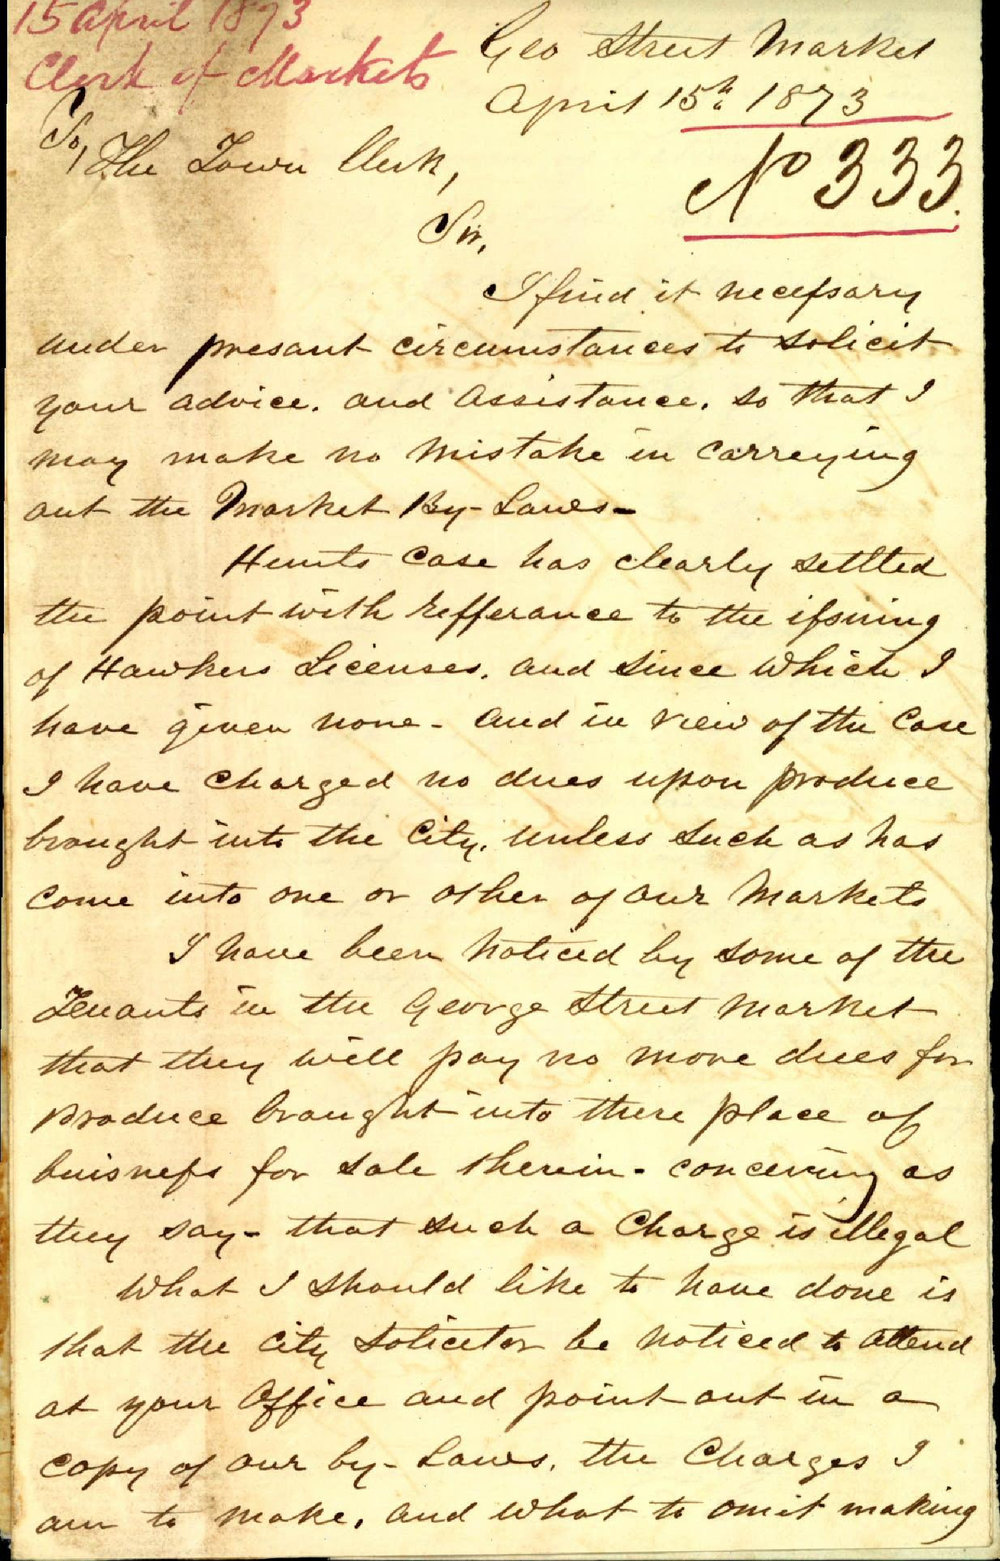 15 April 1873
Clerk of Markets
Geo Street Market
April 15th 1873
No 333.
To, The Town Clerk,
Sir,
I find it necessary
under presant circumstances to solicit
your advice. and assistance. so that I
may make no mistake in carreying
out the Market By-Laws-
Hunts Case has clearly settled
the point with refferance to the issuing
of Hawkers Licenses. and since which I
have given none - and in view of the Case
I have charged no dues upon produce
brought into the City. unless such as has
come into one or other of our Markets
I have been noticed by some of the
Tenants in the George Street Market
that they will pay no more dues for
produce brought into there place of
buisness for sale therein - conceiving as
they say - that such a Charge is illegal
What I should like to have done is
that the City Solicetor be noticed to attend
at your Office and point out in a
copy of our by-Laws. the Charges I
am to make, and what to omit making